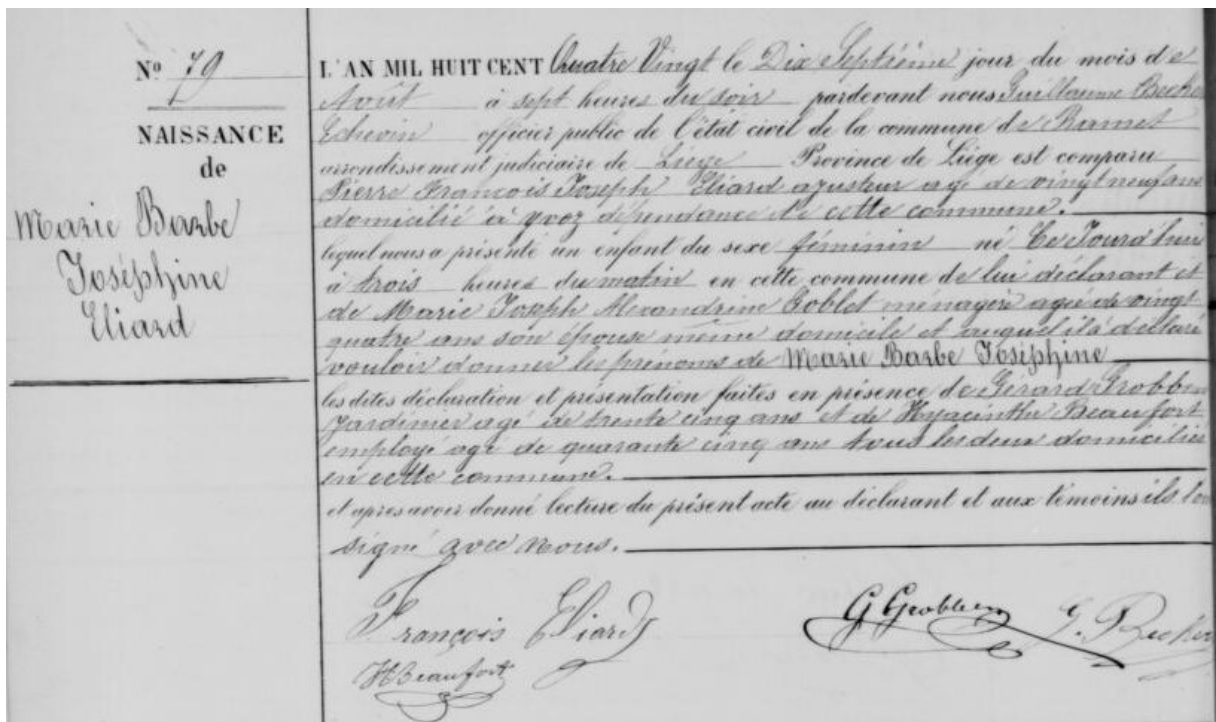 Nº 79
NAISSANCE
de
Marie Barbe
Joséphine
Eliard
L'AN MIL HUIT CENT Quatre Vingt le Dix Septième jour du mois de
Août à sept heures du soir pardevant nous Guillaume Becker
Echevin officier public de l'état civil de la commune de Ramet
arrondissement judiciaire de Liége Province de Liége est comparu
Pierre François Joseph Eliard ajusteur agé de vingt neuf ans
domicilié à Yvoz dépendance de cette commune.
lequel nous a présenté un enfant du sexe féminin né Ce Jourd'hui
à trois heures du matin en cette commune de lui déclarant et
de Marie Joseph Alexandrine Goblet ménagère agée de vingt
quatre ans son épouse même domicile et auquel il a déclaré
vouloir donner les prénoms de Marie Barbe Joséphine
les dites déclaration et présentation faites en présence de Gérard Grobben
Jardinier agé de trente cinq ans et de Hyacinthe Beaufort
employé agé de quarante cinq ans tous les deux domiciliés
en cette commune.
et après avoir donné lecture du présent acte au déclarant et aux témoins ils l'on
signé avec nous.
François Eliard G Grobben G. Becker
H Beaufort